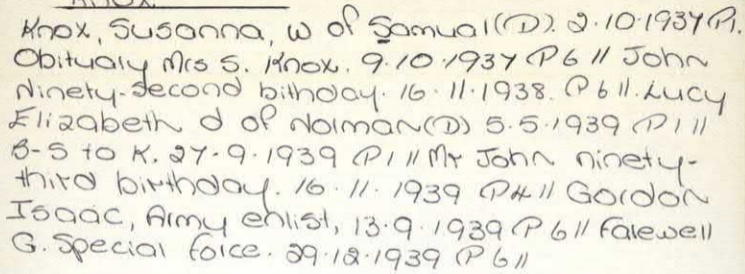 KNOX.
Knox, Susanna, w of Samual (D). 2.10.1937 P1.
Obituary Mrs S. Knox. 9.10.1937 P6 // John
Ninety-second bithday. 16.11.1938. P6 //. Lucy
Elizabeth d of Norman (D) 5.5.1939 P1 //
B-S to K. 27-9.1939 P1 // Mr John ninety-
third birthday. 16.11.1939 P4 // Gordon
Isaac, Army enlist, 13.9.1939 P6 // Farewell
G. Special force. 29.12.1939 P6 //